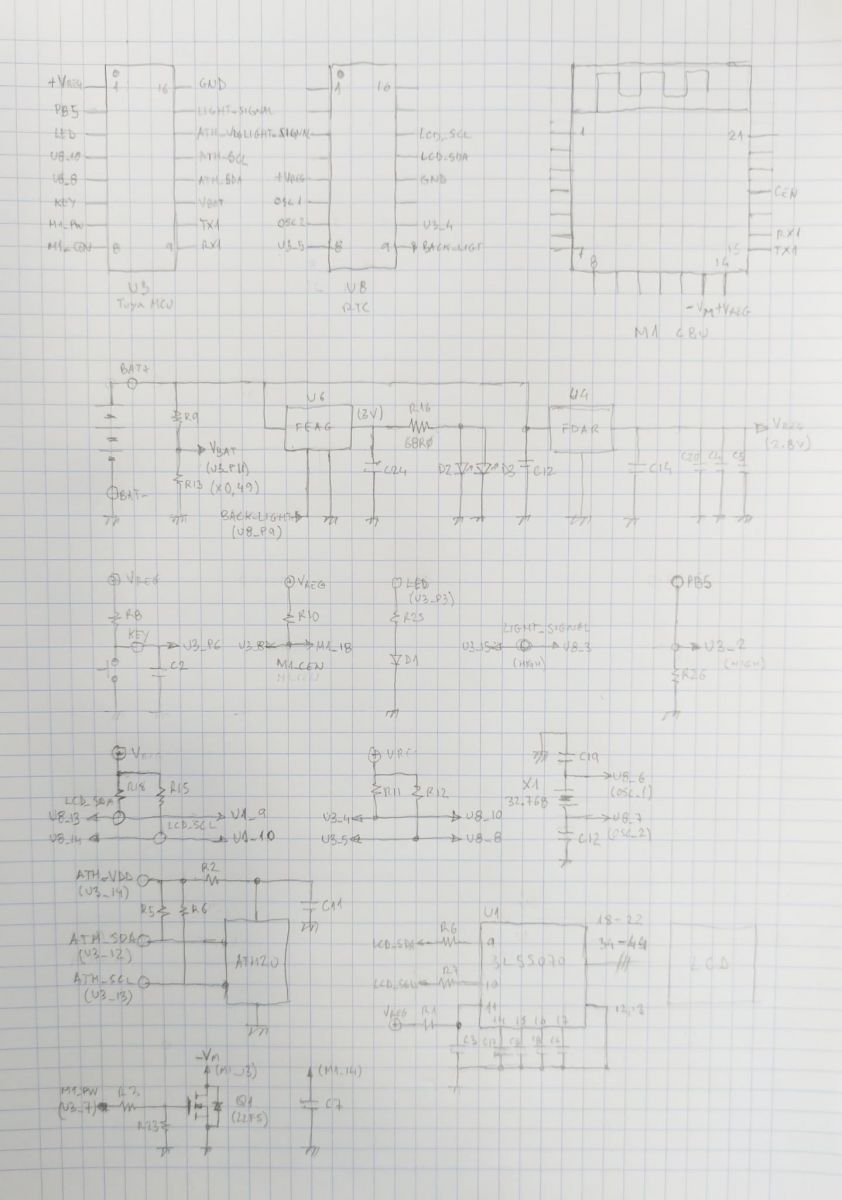 +VREG 1 16 GND
PB5 LIGHT_SIGNAL
LED ATH_VDD
U8_10 ATH_SCL
U8_8 ATH_SDA
KEY VBAT
M1_PW TX1
M1_CEN 8 9 RX1
U3
Tuya MCU
1 16
LIGHT_SIGNAL LCD_SCL
LCD_SDA
+VREG GND
OSC1
OSC2 U3_4
U3_5 8 9 BACK_LIGT
U8
RTC
1 21
CEN
RX1
7 15 TX1
8 14
-VM +VREG
M1 CBU
BAT+
U6 U4
R9 FEAG (3V) R16 FDAR VREG
68R0 (2.8V)
VBAT
(U3_P11)
R13 (X0,49)
BAT-
C24 D2 D3 C12 C14 C20 C4 C5
BACK_LIGHT
(U8_P9)
VREG VREG LED PB5
(U3_P3)
R8 R10 R25
KEY U3_P6 U3_8 M1_18
C2 M1_CEN D1
LIGHT_SIGNAL
U3_15 U8_3
(HIGH)
U3_2
(HIGH)
R26
R18 R15
LCD_SDA
U8_13 U1_9
LCD_SCL
U8_14 U1_10
R11 R12
U3_4 U8_10
U3_5 U8_8
C19
X1 U8_6
32.768 (OSC_1)
U8_7
C12 (OSC_2)
ATH_VDD R2
(U3_14)
R5 R6 C11
ATH_SDA
(U3_12)
ATH20
ATH_SCL
(U3_13)
U1 18-22
LCD_SDA R6 9
LCD
R7 10
VREG R1 11
14 15 16 17
C3
-VM
(M1_13) (M1_14)
M1_PW
(U3_7) Q1 C7
R23